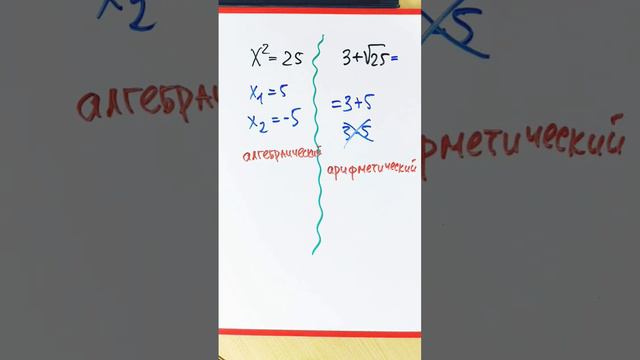 x² = 25
x₁ = 5
x₂ = -5
алгебраический
3 + √25 =
= 3 + 5
3 - 5
арифметический